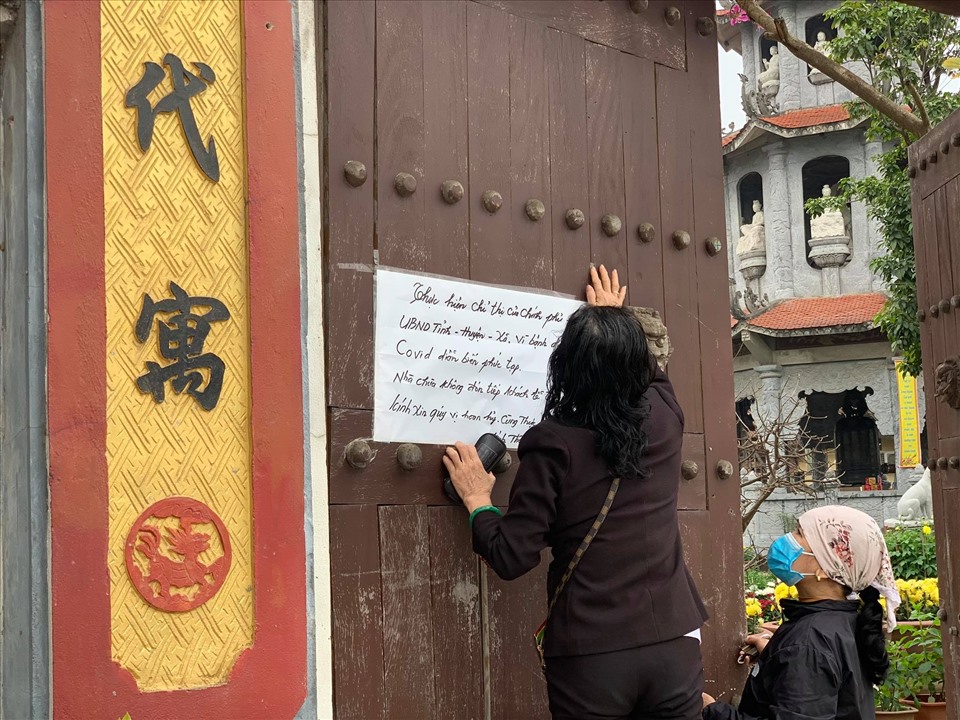 代
寓
Thực hiện chỉ thị của Chính phủ
UBND Tỉnh - Huyện - Xã. Vì bệnh
Covid diễn biến phức tạp.
Nhà chùa không đón tiếp khách
Kính xin quý vị hoan hỷ. Cùng